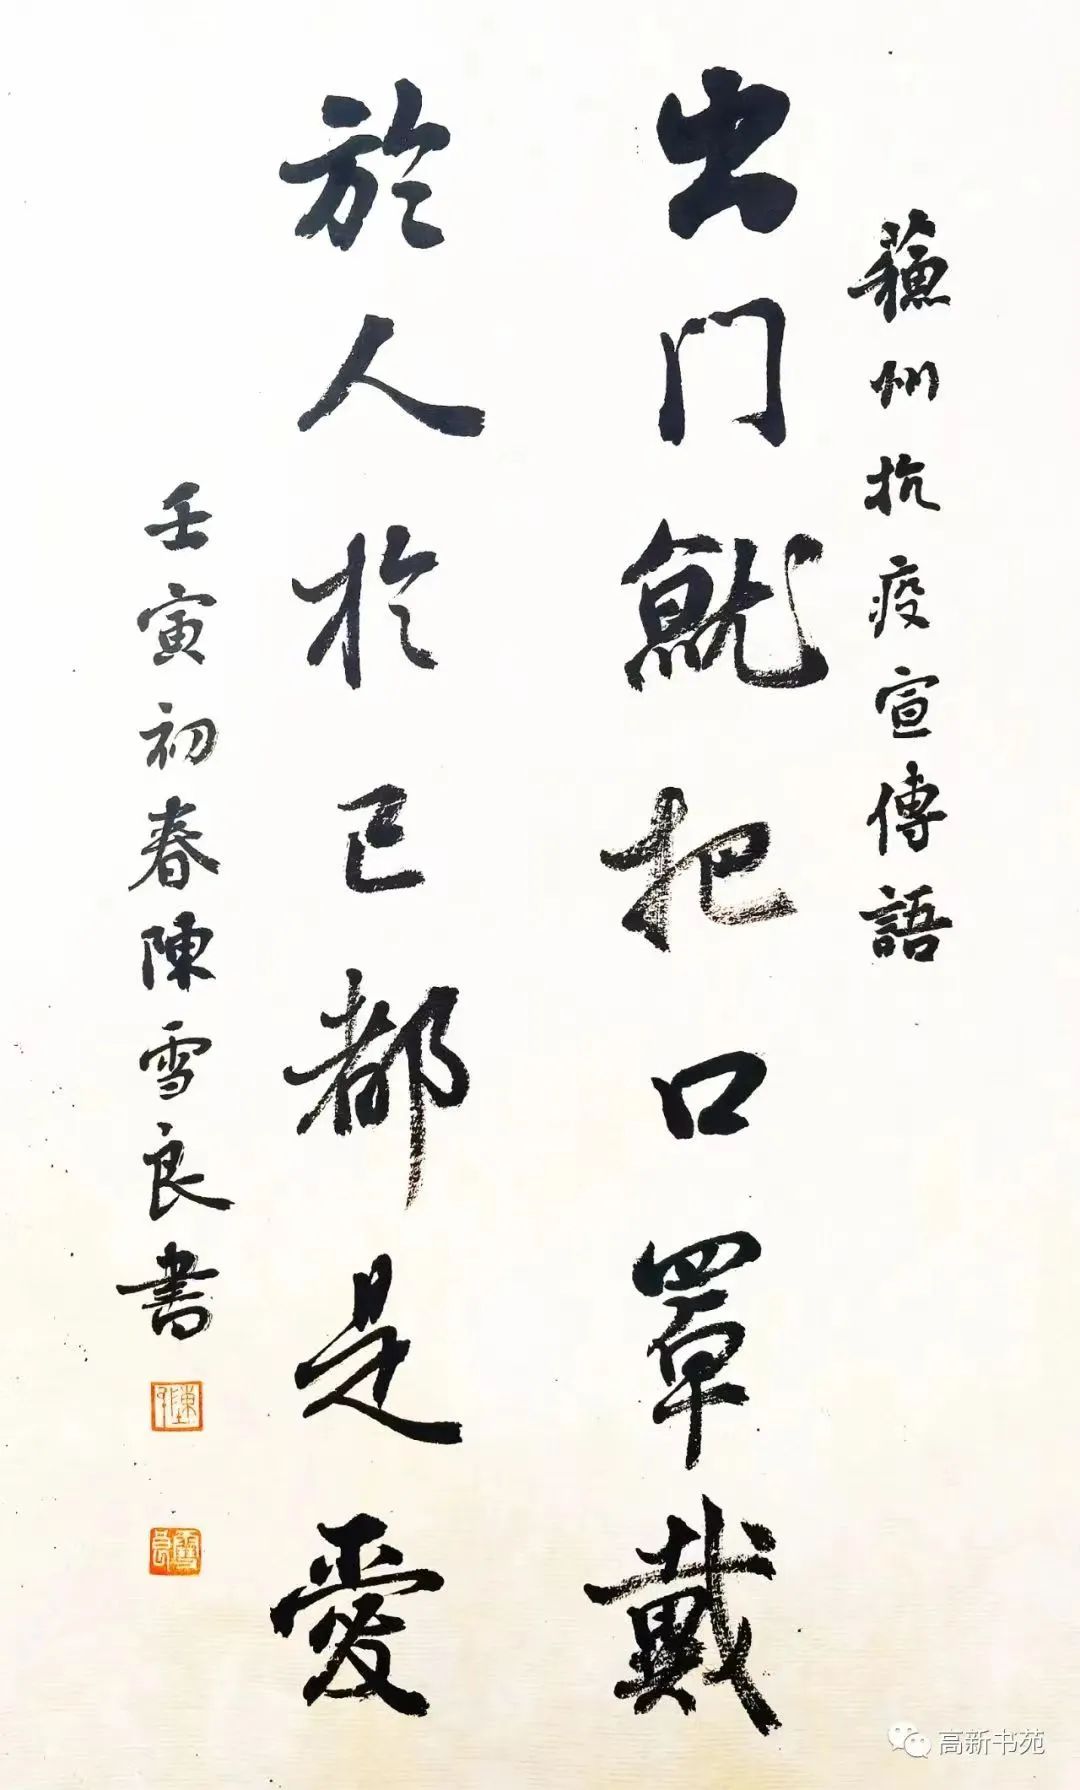 蘇州抗疫宣傳語
出门就把口罩戴
於人於己都是愛
壬寅初春陳雪良書
高新书苑